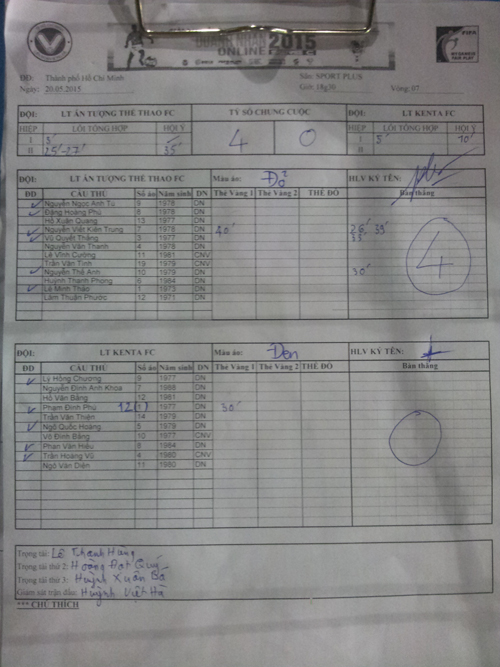 DOANH NHÂN 2015
ONLINE
FIFA
MY GAME IS FAIR PLAY
ĐĐ: Thành phố Hồ Chí Minh Sân: SPORT PLUS
Ngày: 20.05.2015 Giờ: 18g30 Vòng: 07
ĐỘI: LT ẤN TƯỢNG THỂ THAO FC TỶ SỐ CHUNG CUỘC ĐỘI: LT KENTA FC
HIỆP LỖI TỔNG HỢP HỘI Ý 4 0 HIỆP LỖI TỔNG HỢP HỘI Ý
I 5' I 5' 10'
II 25'-27' 35' II
ĐỘI: LT ẤN TƯỢNG THỂ THAO FC Màu áo: Đỏ HLV KÝ TÊN:
ĐD CẦU THỦ Số áo Năm sinh DN Thẻ Vàng 1 Thẻ Vàng 2 THẺ ĐỎ Bàn thắng
Nguyễn Ngọc Anh Tú 9 1978 DN
Đặng Hoàng Phú 8 1978 DN
Hồ Xuân Quang 13 1977 DN
Nguyễn Việt Kiên Trung 7 1978 DN 40' 26' 39'
Vũ Quyết Thắng 3 1977 DN 33'
Nguyễn Văn Thanh 4 1978 DN
Lê Vĩnh Cường 11 1981 CNV
Trần Văn Tính 19 1979 CNV
Nguyễn Thế Anh 10 1979 DN 30'
Huỳnh Thanh Phong 6 1984 DN
Lê Minh Thảo 1 1973 DN
Lâm Thuận Phước 12 1971 DN
4
ĐỘI: LT KENTA FC Màu áo: Đen HLV KÝ TÊN:
ĐD CẦU THỦ Số áo Năm sinh DN Thẻ Vàng 1 Thẻ Vàng 2 THẺ ĐỎ Bàn thắng
Lý Hồng Chương 9 1977 DN
Nguyễn Đình Anh Khoa 7 1988 DN
Hồ Văn Bằng 12 1981 DN
Phạm Đình Phú 12 (1) 1977 DN 30'
Trần Văn Thiện 14 1979 DN
Ngô Quốc Hoàng 5 1979 DN
Võ Đình Bằng 10 1977 CNV
Phan Văn Hiếu 8 1984 DN
Trần Hoàng Vũ 4 1980 CNV
Ngô Văn Diễn 11 1980 DN
Trọng tài: Lê Thanh Hùng
Trọng tài thứ 2: Hoàng Đạt Quý
Trọng tài thứ 3: Huỳnh Xuân Bá
Giám sát trận đấu: Huỳnh Việt Hà
*** CHÚ THÍCH